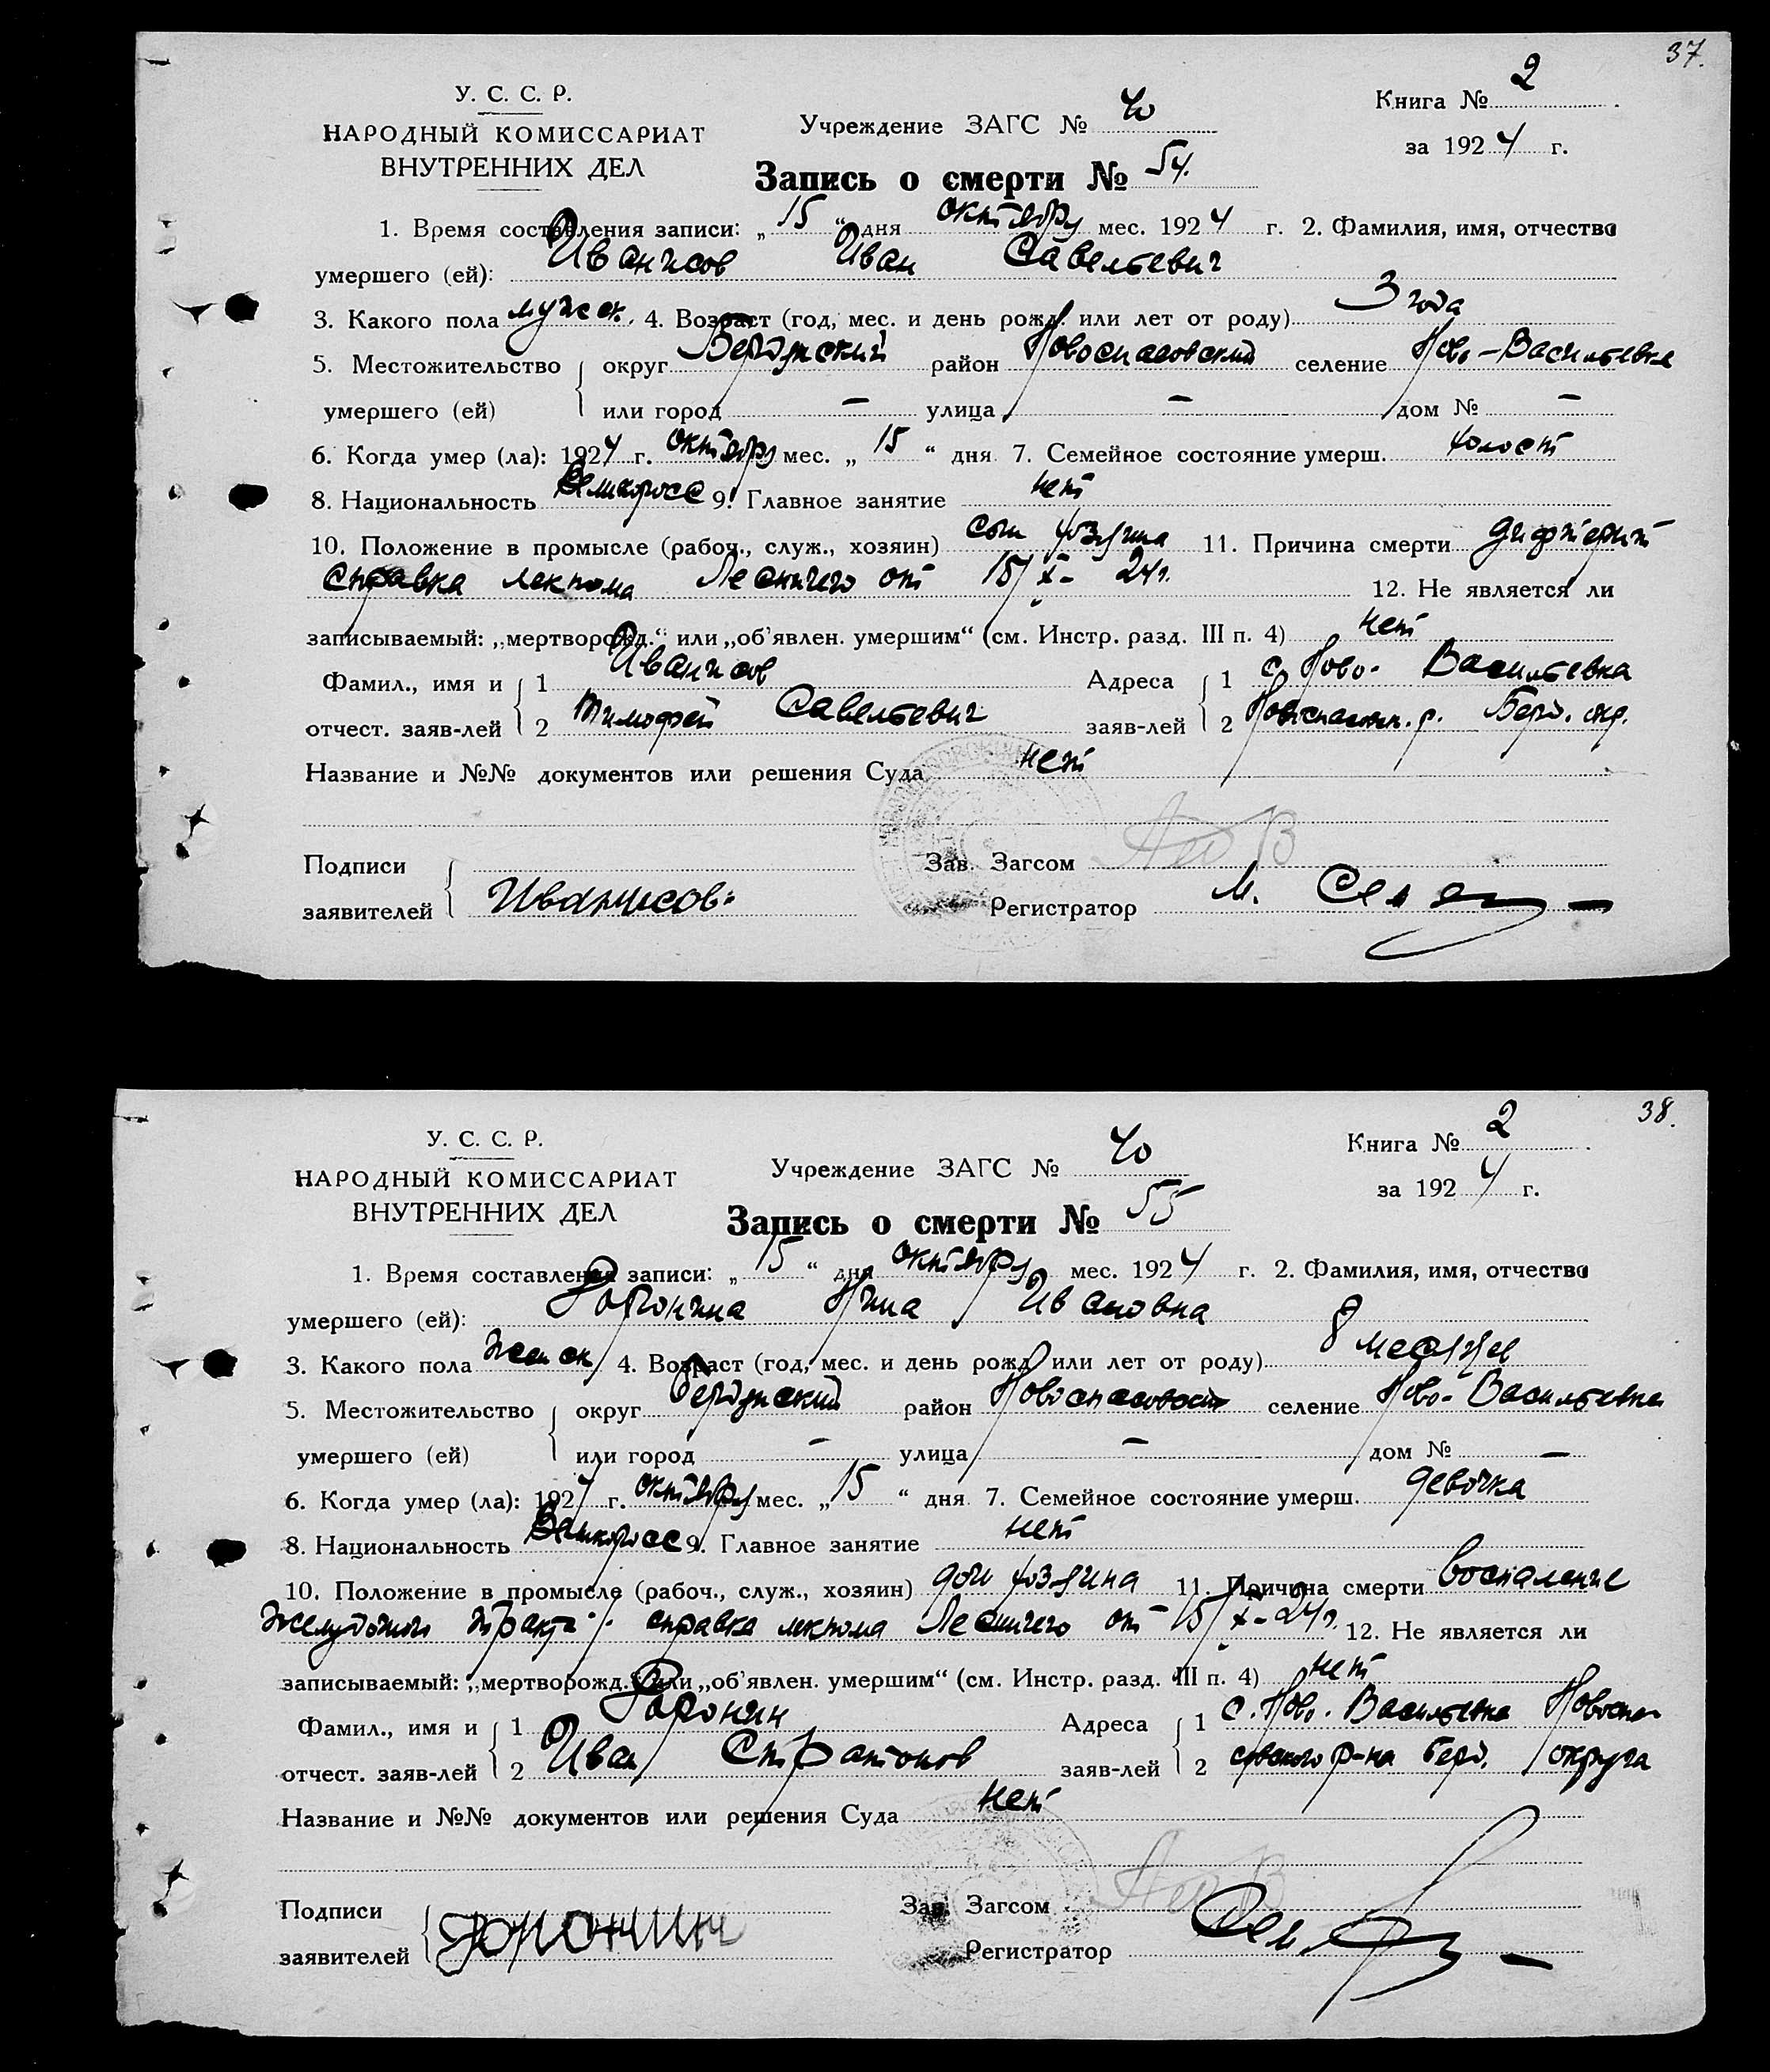 37.
У. С. С. Р.
НАРОДНЫЙ КОМИССАРИАТ
ВНУТРЕННИХ ДЕЛ
Учреждение ЗАГС № 40
Книга № 2
за 1924 г.
Запись о смерти № 54.
1. Время составления записи: „15“ дня октября мес. 1924 г. 2. Фамилия, имя, отчество
умершего (ей): Иванисов Иван Савельевич
3. Какого пола мужск. 4. Возраст (год, мес. и день рожд. или лет от роду) 3 года
5. Местожительство округ Бердянский район Новоспасовский селение Ново-Васильевка
умершего (ей) или город — улица — дом № —
6. Когда умер (ла): 1924 г. октября мес. „15“ дня 7. Семейное состояние умерш. холост
8. Национальность Великоросс 9. Главное занятие нет
10. Положение в промысле (рабоч., служ., хозяин) сын хозяина 11. Причина смерти дифтерит
справка лекпома Лесничего от 15/X- 24г. 12. Не является ли
записываемый: „мертворожд.“ или „об’явлен. умершим“ (см. Инстр. разд. III п. 4) нет
Фамил., имя и 1 Иванисов Адреса 1 с. Ново-Васильевка
отчест. заяв-лей 2 Тимофей Савельевич заяв-лей 2 р. Берд. окр.
Название и №№ документов или решения Суда нет
Подписи Зав. Загсом
заявителей Иванисов Регистратор М.
38.
У. С. С. Р.
НАРОДНЫЙ КОМИССАРИАТ
ВНУТРЕННИХ ДЕЛ
Учреждение ЗАГС № 40
Книга № 2
за 1924 г.
Запись о смерти № 55
1. Время составления записи: „15“ дня октября мес. 1924 г. 2. Фамилия, имя, отчество
умершего (ей): Нина Ивановна
3. Какого пола женск 4. Возраст (год, мес. и день рожд. или лет от роду) 8 месяцев
5. Местожительство округ Бердянский район Новоспасовский селение Ново-Васильевка
умершего (ей) или город — улица — дом № —
6. Когда умер (ла): 1924 г. октября мес. „15“ дня 7. Семейное состояние умерш. девочка
8. Национальность Великоросс 9. Главное занятие нет
10. Положение в промысле (рабоч., служ., хозяин) доч хозяина 11. Причина смерти воспаление
тракта справка лекпома Лесничего от 15/X-24г. 12. Не является ли
записываемый: „мертворожд.“ или „об’явлен. умершим“ (см. Инстр. разд. III п. 4) нет
Фамил., имя и 1 Адреса 1 с. Ново-Васильевка Новоспа-
отчест. заяв-лей 2 Иван Стратонов заяв-лей 2 совского р-на Берд. округа
Название и №№ документов или решения Суда нет
Подписи Зав. Загсом
заявителей Регистратор